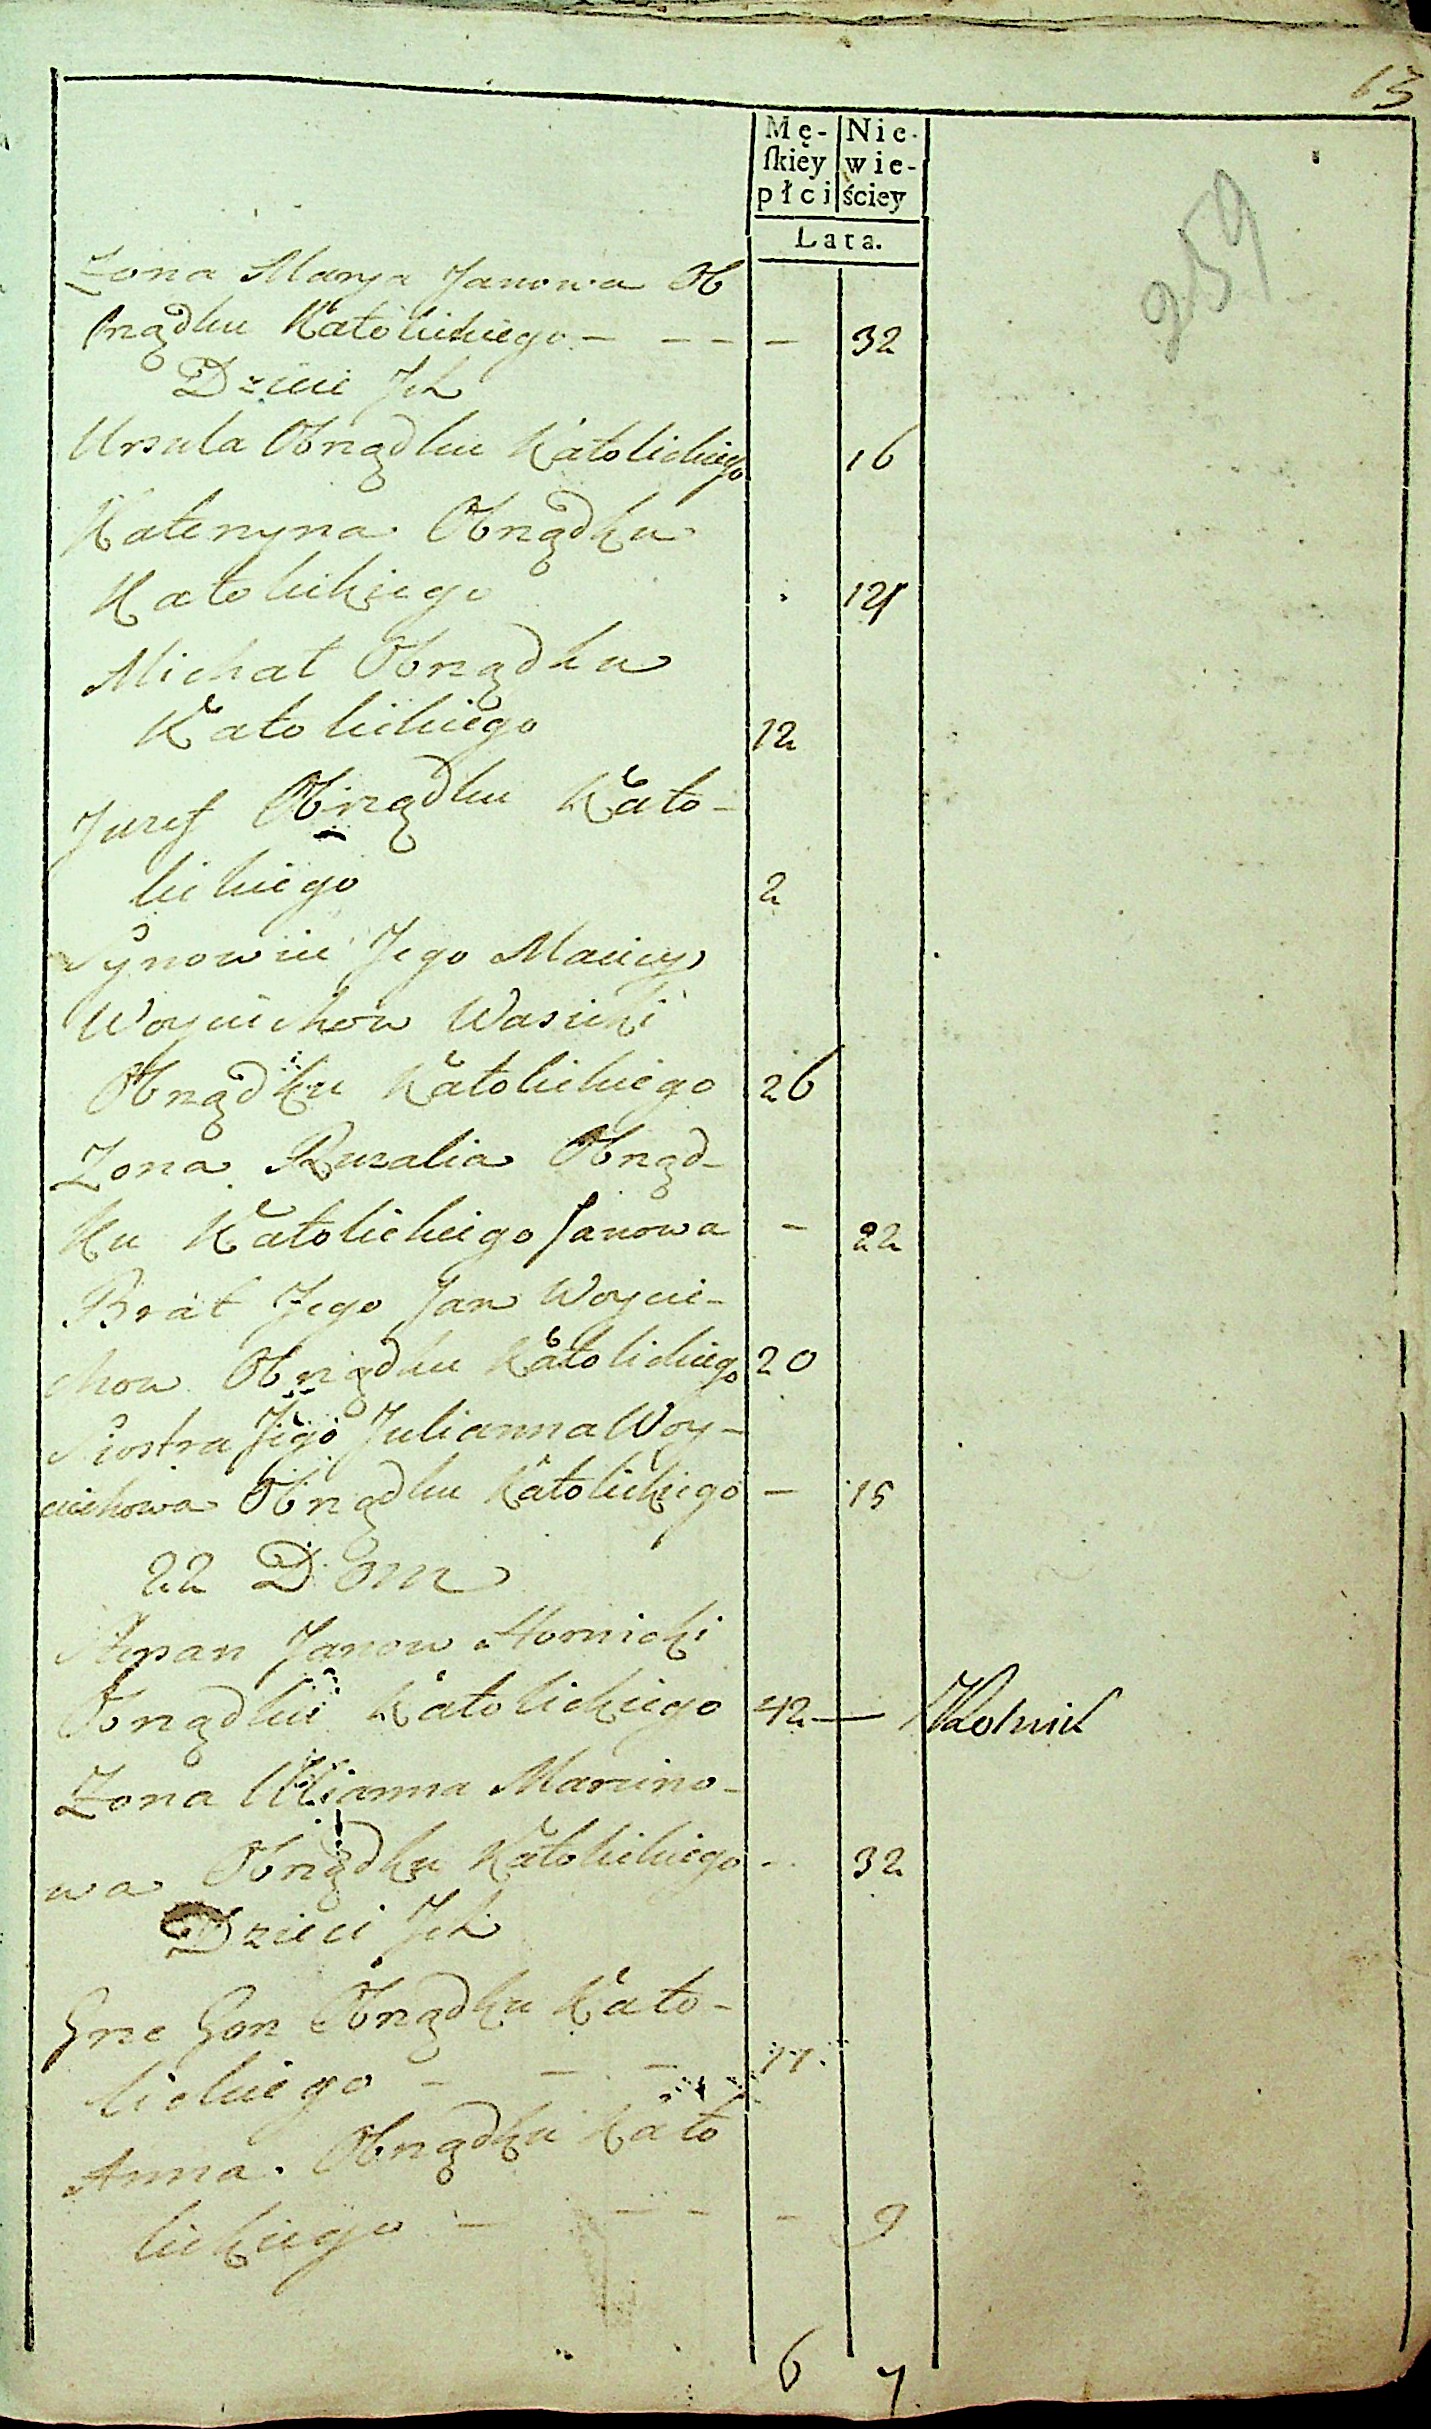 63
259
Mę- Nie-
ſkiey wie-
płci ściey
Lata.
Zona Marya Janowa Ob
rządku Katolickiego - - - - 32
Dzieci Jch
Ursula Obrządku Katolickiego 16
Kateryna Obrządku
Katolickiego 14
Michał Obrządku
Katolickiego 12
Juzef Obrządku Kato-
lickiego 2
Synowiec Jego Maciey
Woyciechow Wasicki
Obrządku Katolickiego 26
Zona Ruzalia Obrząd-
ku Katolickiego Janowa - 22
Brat Jego Jan Woycie-
chow Obrządku Katolickiego 20
Siostra Jego Julianna Woy-
ciechowa Obrządku Katolickiego - 15
22 Dom
Stepan Janow
Obrządku Katolickiego 42 -
Zona Ulianna Marcino-
wa Obrządku Katolickiego - 32
Dzieci Jch
Grze Gorz Obrządku Kato-
lickiego - - - 11
Anna Obrządku Kato
lickiego - - - - 9
6 7